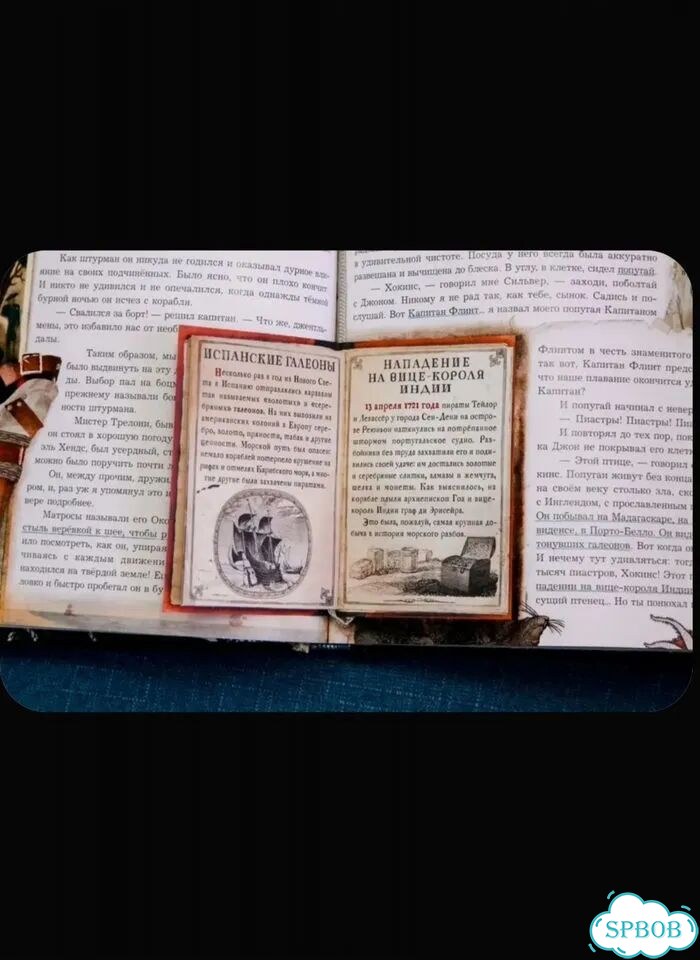 Как штурман он никуда не годился и оказывал дурное вли-
яние на своих подчинённых. Было ясно, что он плохо кончит
И никто не удивился и не опечалился, когда однажды тёмной
бурной ночью он исчез с корабля.
— Свалился за борт! — решил капитан. — Что же, джентль-
мены, это избавило нас от необ
далы.
Таким образом, мы
было выдвинуть на эту д
ды. Выбор пал на боцм
прежнему называли его
ности штурмана.
Мистер Трелони, быв
он стоял в хорошую погоду
эль Хендс, был усердный, ст
можно было поручить почти л
Он, между прочим, дружи
ром, и, раз уж я упомянул это и
вере подробнее.
Матросы называли его Око
стыль верёвкой к шее, чтобы р
ило посмотреть, как он, упирая
чиваясь с каждым движени
находился на твёрдой земле! Ещ
ловко и быстро пробегал он в бу
ИСПАНСКИЕ ГАЛЕОНЫ
Несколько раз в год из Нового Све-
та в Испанию отправлялись караваны
так называемых «золотых» и «сере-
бряных» галеонов. На них вывозили из
американских колоний в Европу сере-
бро, золото, пряности, табак и другие
ценности. Морской путь был опасен:
немало кораблей потерпело крушение на
рифах и отмелях Карибского моря, а мно-
гие другие были захвачены пиратами.
НАПАДЕНИЕ
НА ВИЦЕ-КОРОЛЯ
ИНДИИ
13 апреля 1721 года пираты Тейлор
и Левассёр у города Сен-Дени на остро-
ве Реюньон наткнулись на потрёпанное
штормом португальское судно. Раз-
бойники без труда захватили его и поди-
вились своей удаче: им достались золотые
и серебряные слитки, алмазы и жемчуга,
шелка и монеты. Как выяснилось, на
корабле плыли архиепископ Гоа и вице-
король Индии граф ди Эрисейра.
Это была, пожалуй, самая крупная до-
быча в истории морского разбоя.
в удивительной чистоте. Посуда у него всегда была аккуратно
развешана и вычищена до блеска. В углу, в клетке, сидел попугай.
— Хокинс, — говорил мне Сильвер, — заходи, поболтай
с Джоном. Никому я не рад так, как тебе, сынок. Садись и по-
слушай. Вот Капитан Флинт.. я назвал моего попугая Капитаном
Флинтом в честь знаменитого
так вот, Капитан Флинт предс
что наше плавание окончится у
Капитан?
И попугай начинал с невер
— Пиастры! Пиастры! Пиа
И повторял до тех пор, пок
ка Джон не покрывал его клетк
— Этой птице, — говорил
кинс. Попугаи живут без конца
на своём веку столько зла, ск
с Инглендом, с прославленным
Он побывал на Мадагаскаре, на
виденсе, в Порто-Белло. Он вид
тонувших галеонов. Вот когда о
И нечему тут удивляться: тог
тысяч пиастров, Хокинс! Этот
падении на вице-короля Индии
сущий птенец.. Но ты понюхал
SPBOB